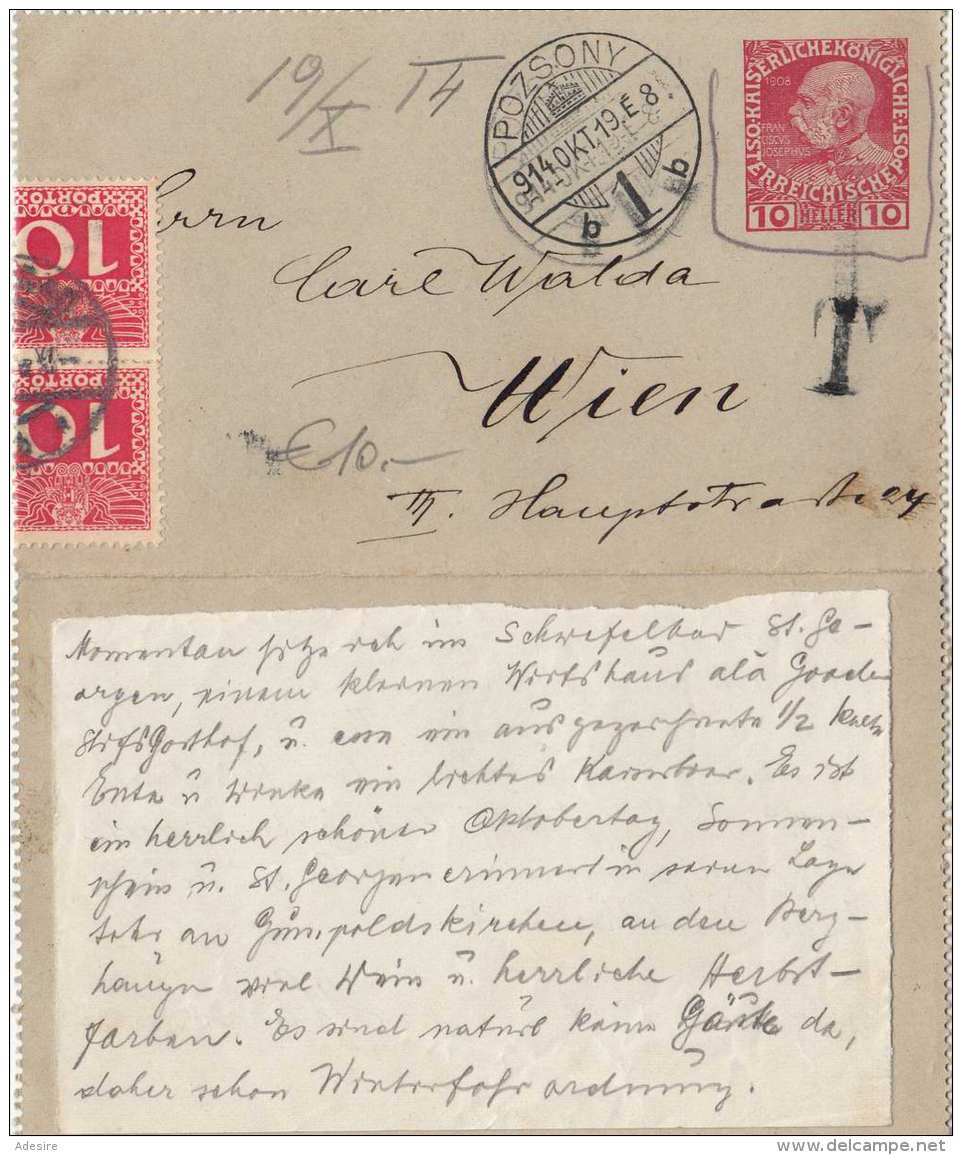 19/X 14
POZSONY
914 OKT. 19. É 8
b
1
b
KAISERLICHE KÖNIGLICHE
OSTERREICHISCHE POST
1908
FRANCISCVS JOSEPHVS
10 HELLER 10
PORTO
10
PORTO
10
Herrn
Carl Walda
T
Wien
€ 10.-
III. Hauptstrasse 24
Momentan sitze ich im Schwefelbad St. Ge-
orgen, einem kleinen Wirtshaus alà
u. ein ausgezeichnete 1/2 kalte
Ente u trinke ein lichtes Es ist
ein herrlich schöner Oktobertag, Sonnen-
schein u. St. Georgen erinnert in seiner Lage
sehr an Gumpoldskirchen, an den Berg-
hängen viel Wein u. herrliche Herbst-
farben. Es sind natürl keine Gäste da,
daher schon Winterfahrordnung.
Adesire
www.delcampe.net